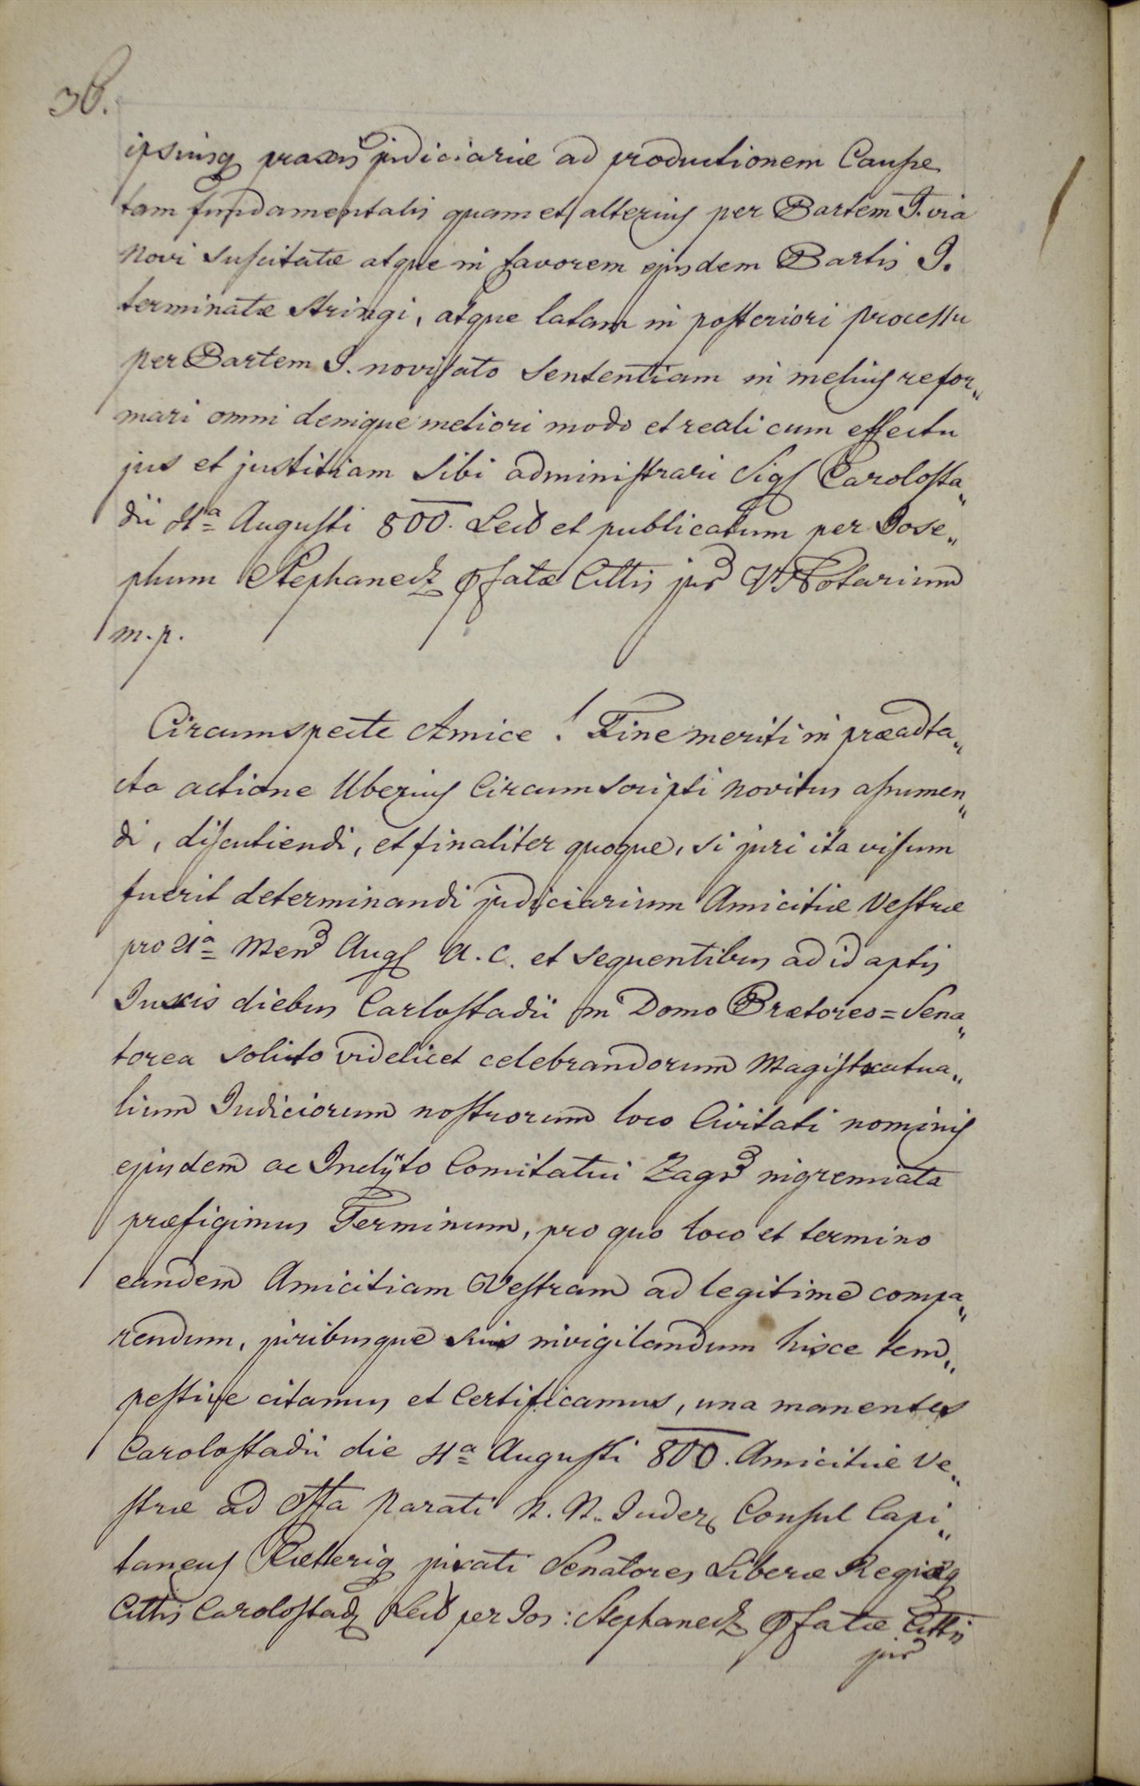 36.
ipsiusq praxis judiciariæ ad productionem Causæ
tam fundamentalis quam et alterius per Partem I. via
Novi suscitatæ atque in favorem ejusdem Partis I.
terminatæ stringi, atque latam in posteriori processu
per Partem I. novisato Sententiam in melius refor„
mari omni denique meliori modo et reali cum effectu
jus et justitiam sibi administrari Sigs Carolosta„
dii 4a Augusti 800. Lect et publicatum per Jose„
phum Stephanecz pfatæ Cittis jur VNotarium
m. p.
Circumspecte Amice! Fine meriti in præadta„
cto actione Uberius Circumscripti novitus assumen„
di, discutiendi, et finaliter quoque, si juri ita visum
fuerit determinandi judiciarium Amicitiæ Vestræ
pro 21a Mens Augs a. c. et sequentibus ad id aptis
Juxis diebus Carlostadii in Domo Prætoreo=Sena„
torea solito videlicet celebrandorum Magistratua„
lium Judiciorum nostrorum loco Civitati nominis
ejusdem ac Inclÿto Comitatui Zagr ingremiata
præfigimus Terminum, pro quo loco et termino
eandem Amicitiam Vestram ad legitime compa„
rendum, juribusque suis invigilandum hisce tem„
pestive citamus et Certificamus, una manentes
Carolostadii die 4a Augusti 800. Amicitiæ Ve„
stræ ad Offa Parati N. N. Judex Consul Capi„
taneus Cæteriq jurati Senatores Liberæ Regiæq
Cittis Carolostad Lect per Jos: Stephanecz pfatæ Cittis
jur